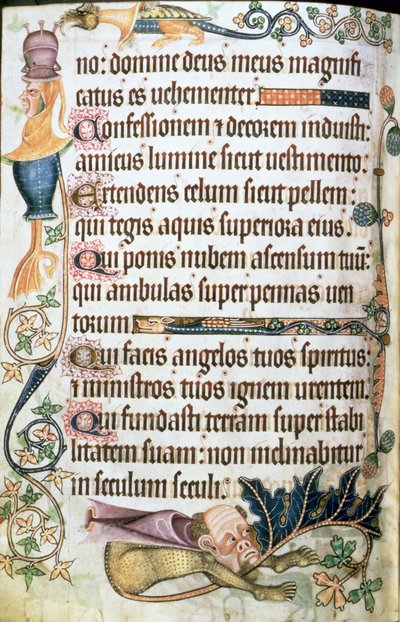 no: domine deus meus magnifi
catus es vehementer.
Confessionem ⁊ decorem induisti:
amictus lumine sicut vestimento.
Extendens celum sicut pellem:
qui tegis aquis superiora eius.
Qui ponis nubem ascensum tuū:
qui ambulas super pennas ven
torum
Qui facis angelos tuos spiritus:
⁊ ministros tuos ignem urentem.
Qui fundasti terram super stabi
litatem suam: non inclinabitur
in seculum seculi.